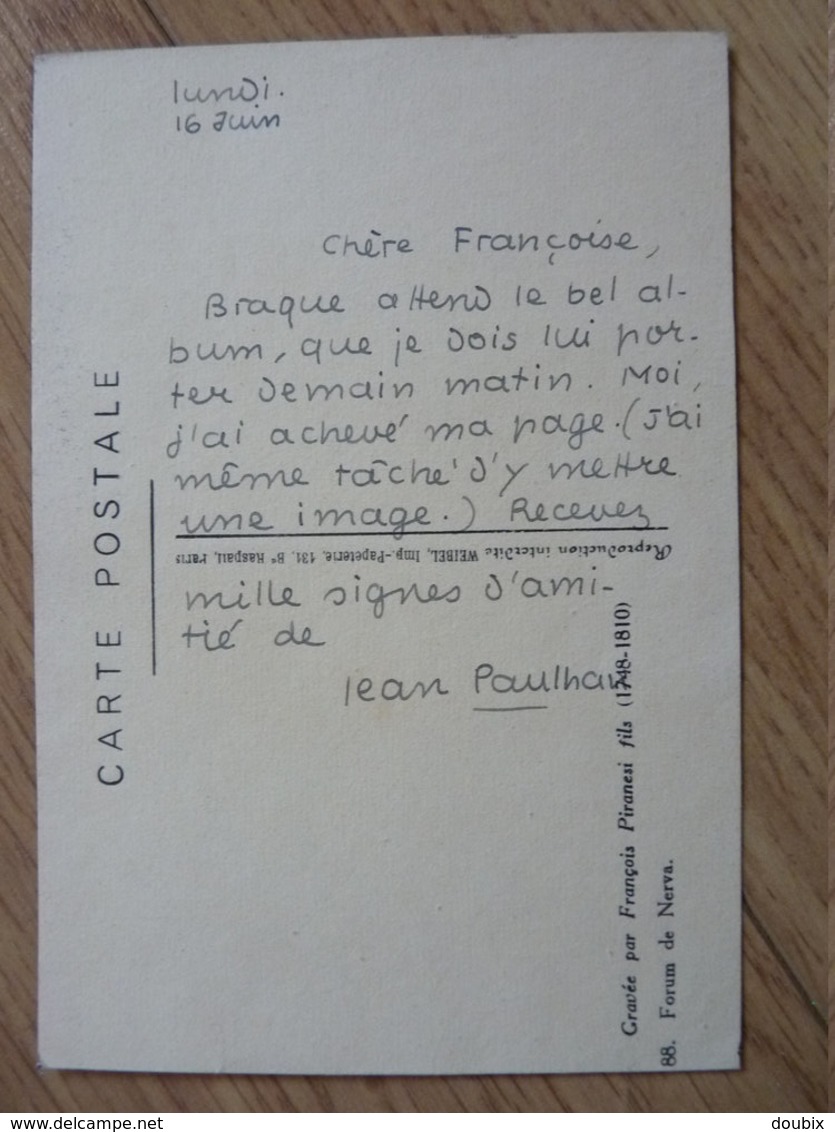 lundi.
16 Juin
Chère Françoise,
Braque attend le bel al-
bum, que je dois lui por-
ter demain matin. Moi,
j'ai achevé ma page. (J'ai
même tâché d'y mettre
une image.) Recevez
mille signes d'ami-
tié de
Jean Paulhan
CARTE POSTALE
Reproduction interdite WEIBEL, Imp.-Papeterie, 131, Bd Raspail, Paris
Gravée par François Piranesi fils (1748-1810)
88. Forum de Nerva.
www.delcampe.net
doubix